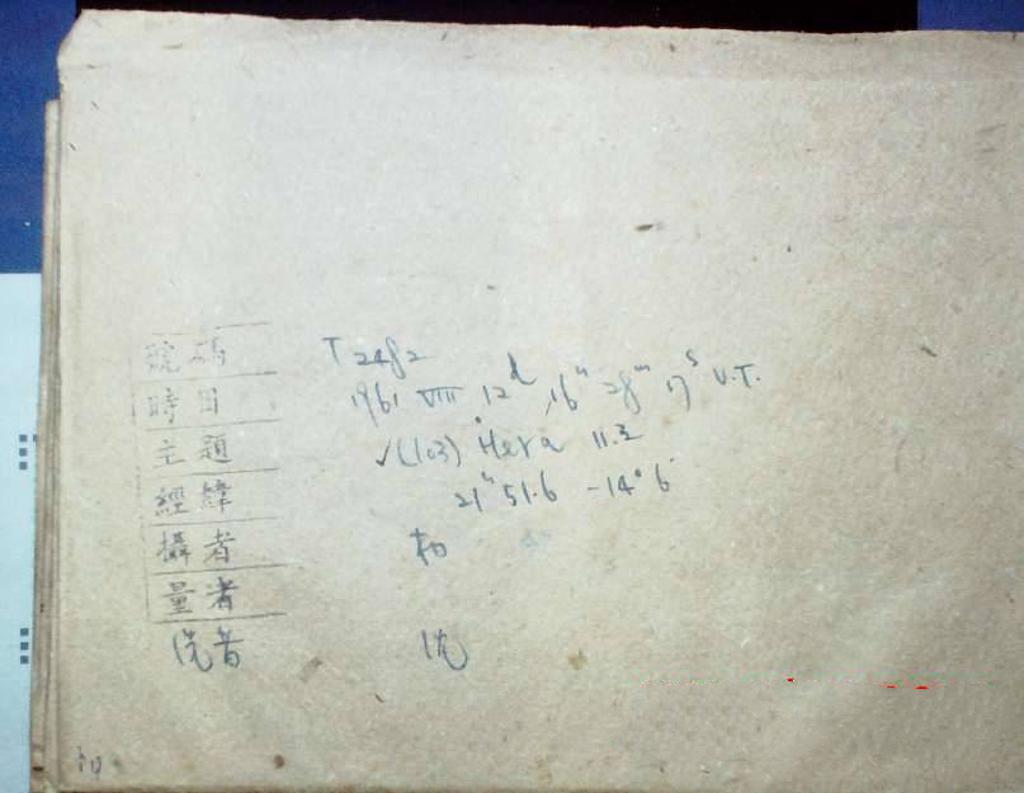 號碼 T2482
時日 1961 VIII 12d, 16h 28m 17s U.T.
主題 √(103) Hera 11.2
經緯 21h 51.6 -14° 6'
攝者
量者
洗者 沈